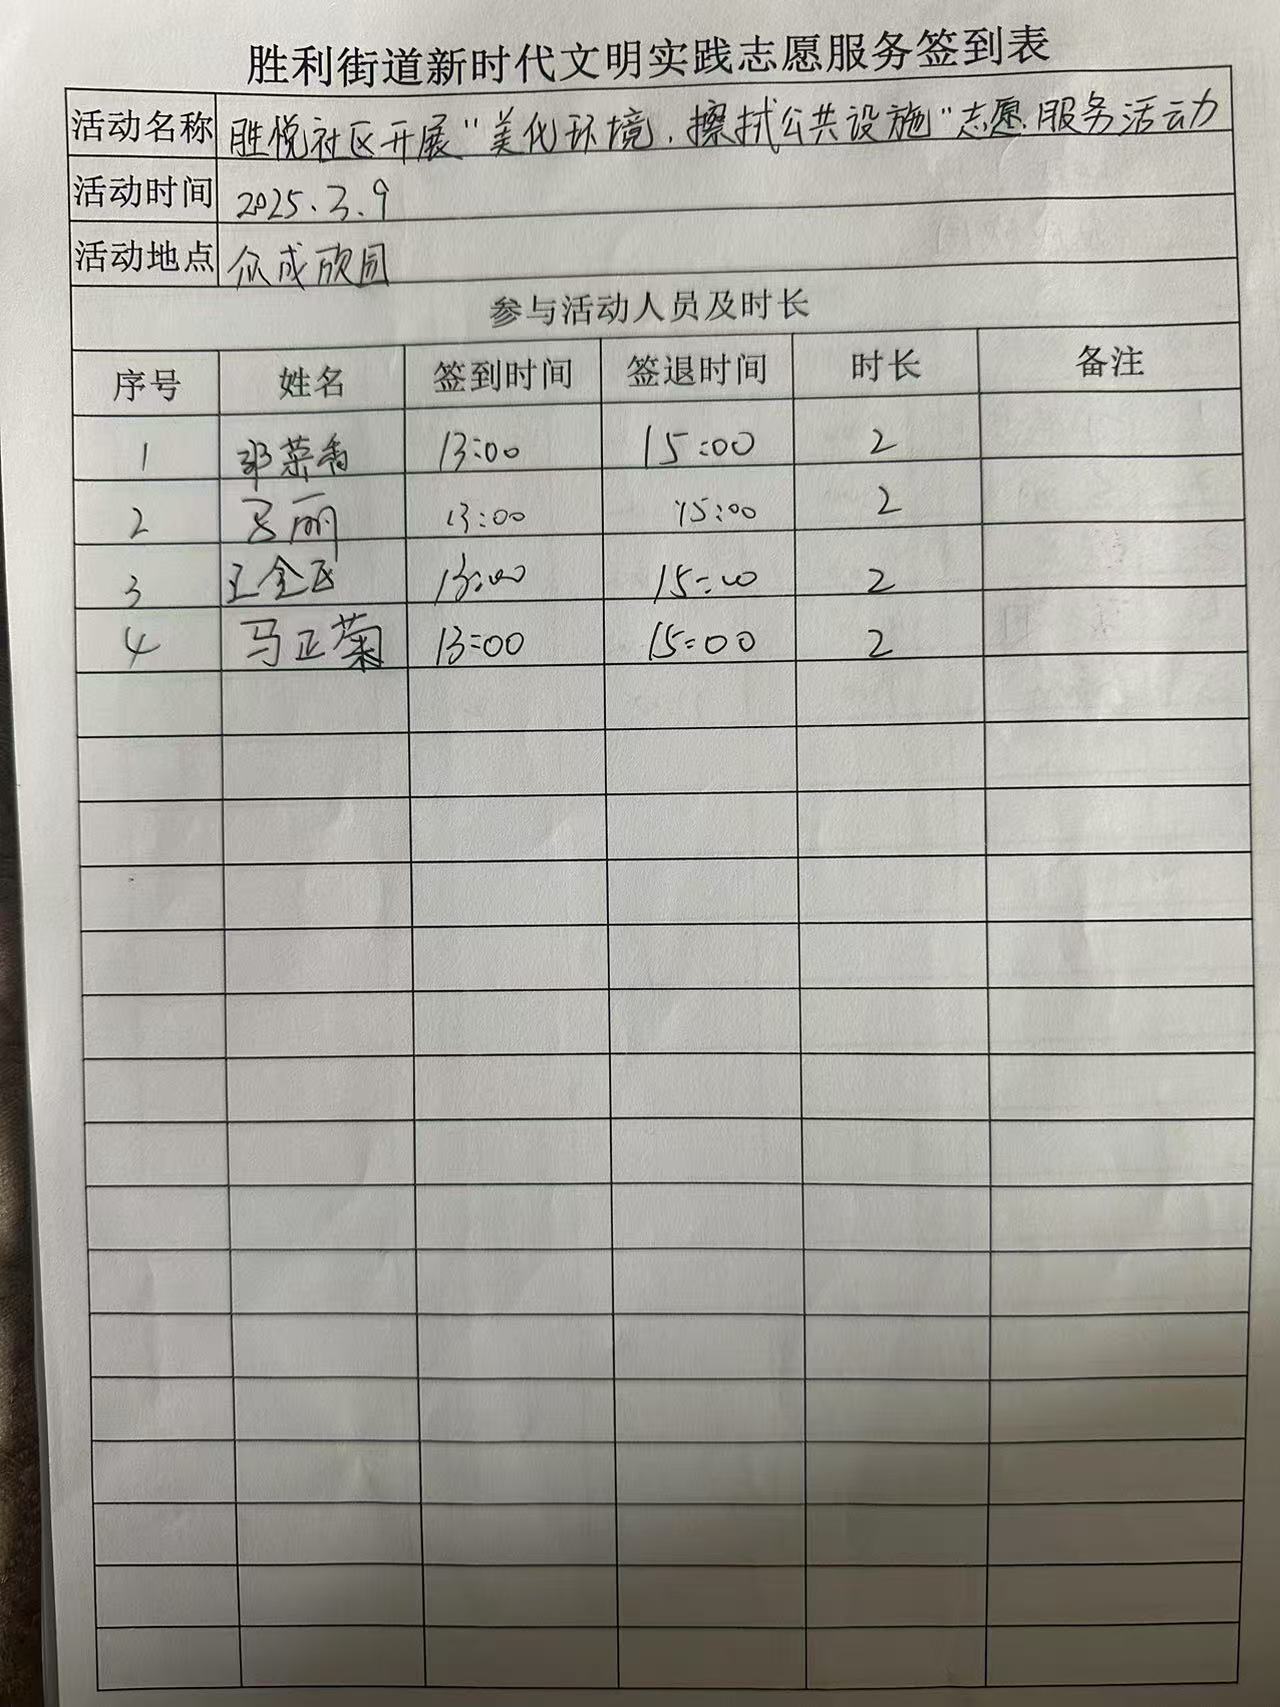 胜利街道新时代文明实践志愿服务签到表
活动名称 胜悦社区开展"美化环境,擦拭公共设施"志愿服务活动
活动时间 2025.3.9
活动地点 众成欣园
参与活动人员及时长
序号 姓名 签到时间 签退时间 时长 备注
1 邓菜香 13:00 15:00 2
2 马丽 13:00 15:00 2
3 王全 13:00 15:00 2
4 马正菊 13:00 15:00 2